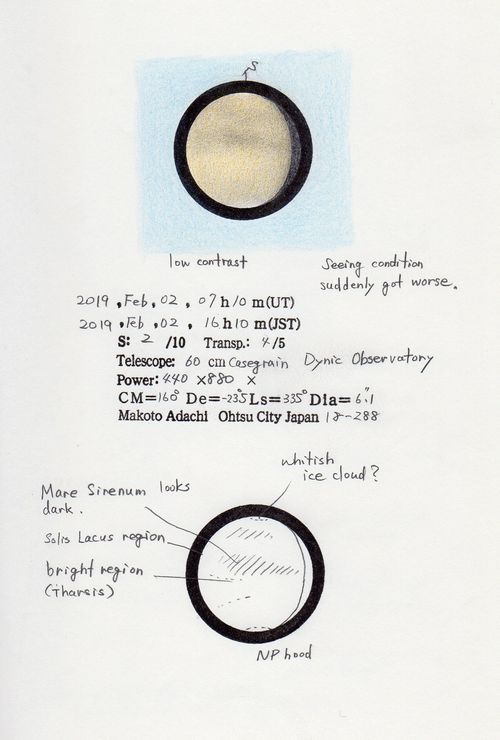 S
low contrast
Seeing condition
suddenly got worse.
2019 , Feb, 02 , 07 h 10 m(UT)
2019 , Feb , 02 , 16 h 10 m(JST)
S: 2 /10 Transp.: 4/5
Telescope: 60 cm Casegrain Dynic Observatory
Power: 440 ×880 ×
CM=160° De=-23.5 Ls=335° Dia= 6".1
Makoto Adachi Ohtsu City Japan 18-288
whitish
ice cloud?
Mare Sirenum looks
dark.
Solis Lacus region
bright region
(Tharsis)
NP hood